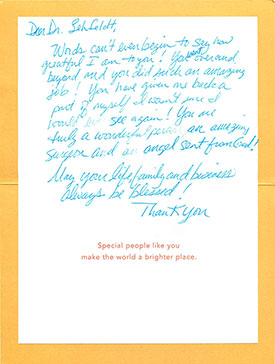 Dear Dr. Lehfeldt,
Words can't even begin to say how
grateful I am to you! You went over and
beyond and you did such an amazing
job! You have given me back a
part of myself I wasn't sure I
would ever see again! You are
truly a wonderful person, an amazing
surgeon and an angel sent from God!
May your life, family, and business
always be blessed!
Thank you
Special people like you
make the world a brighter place.